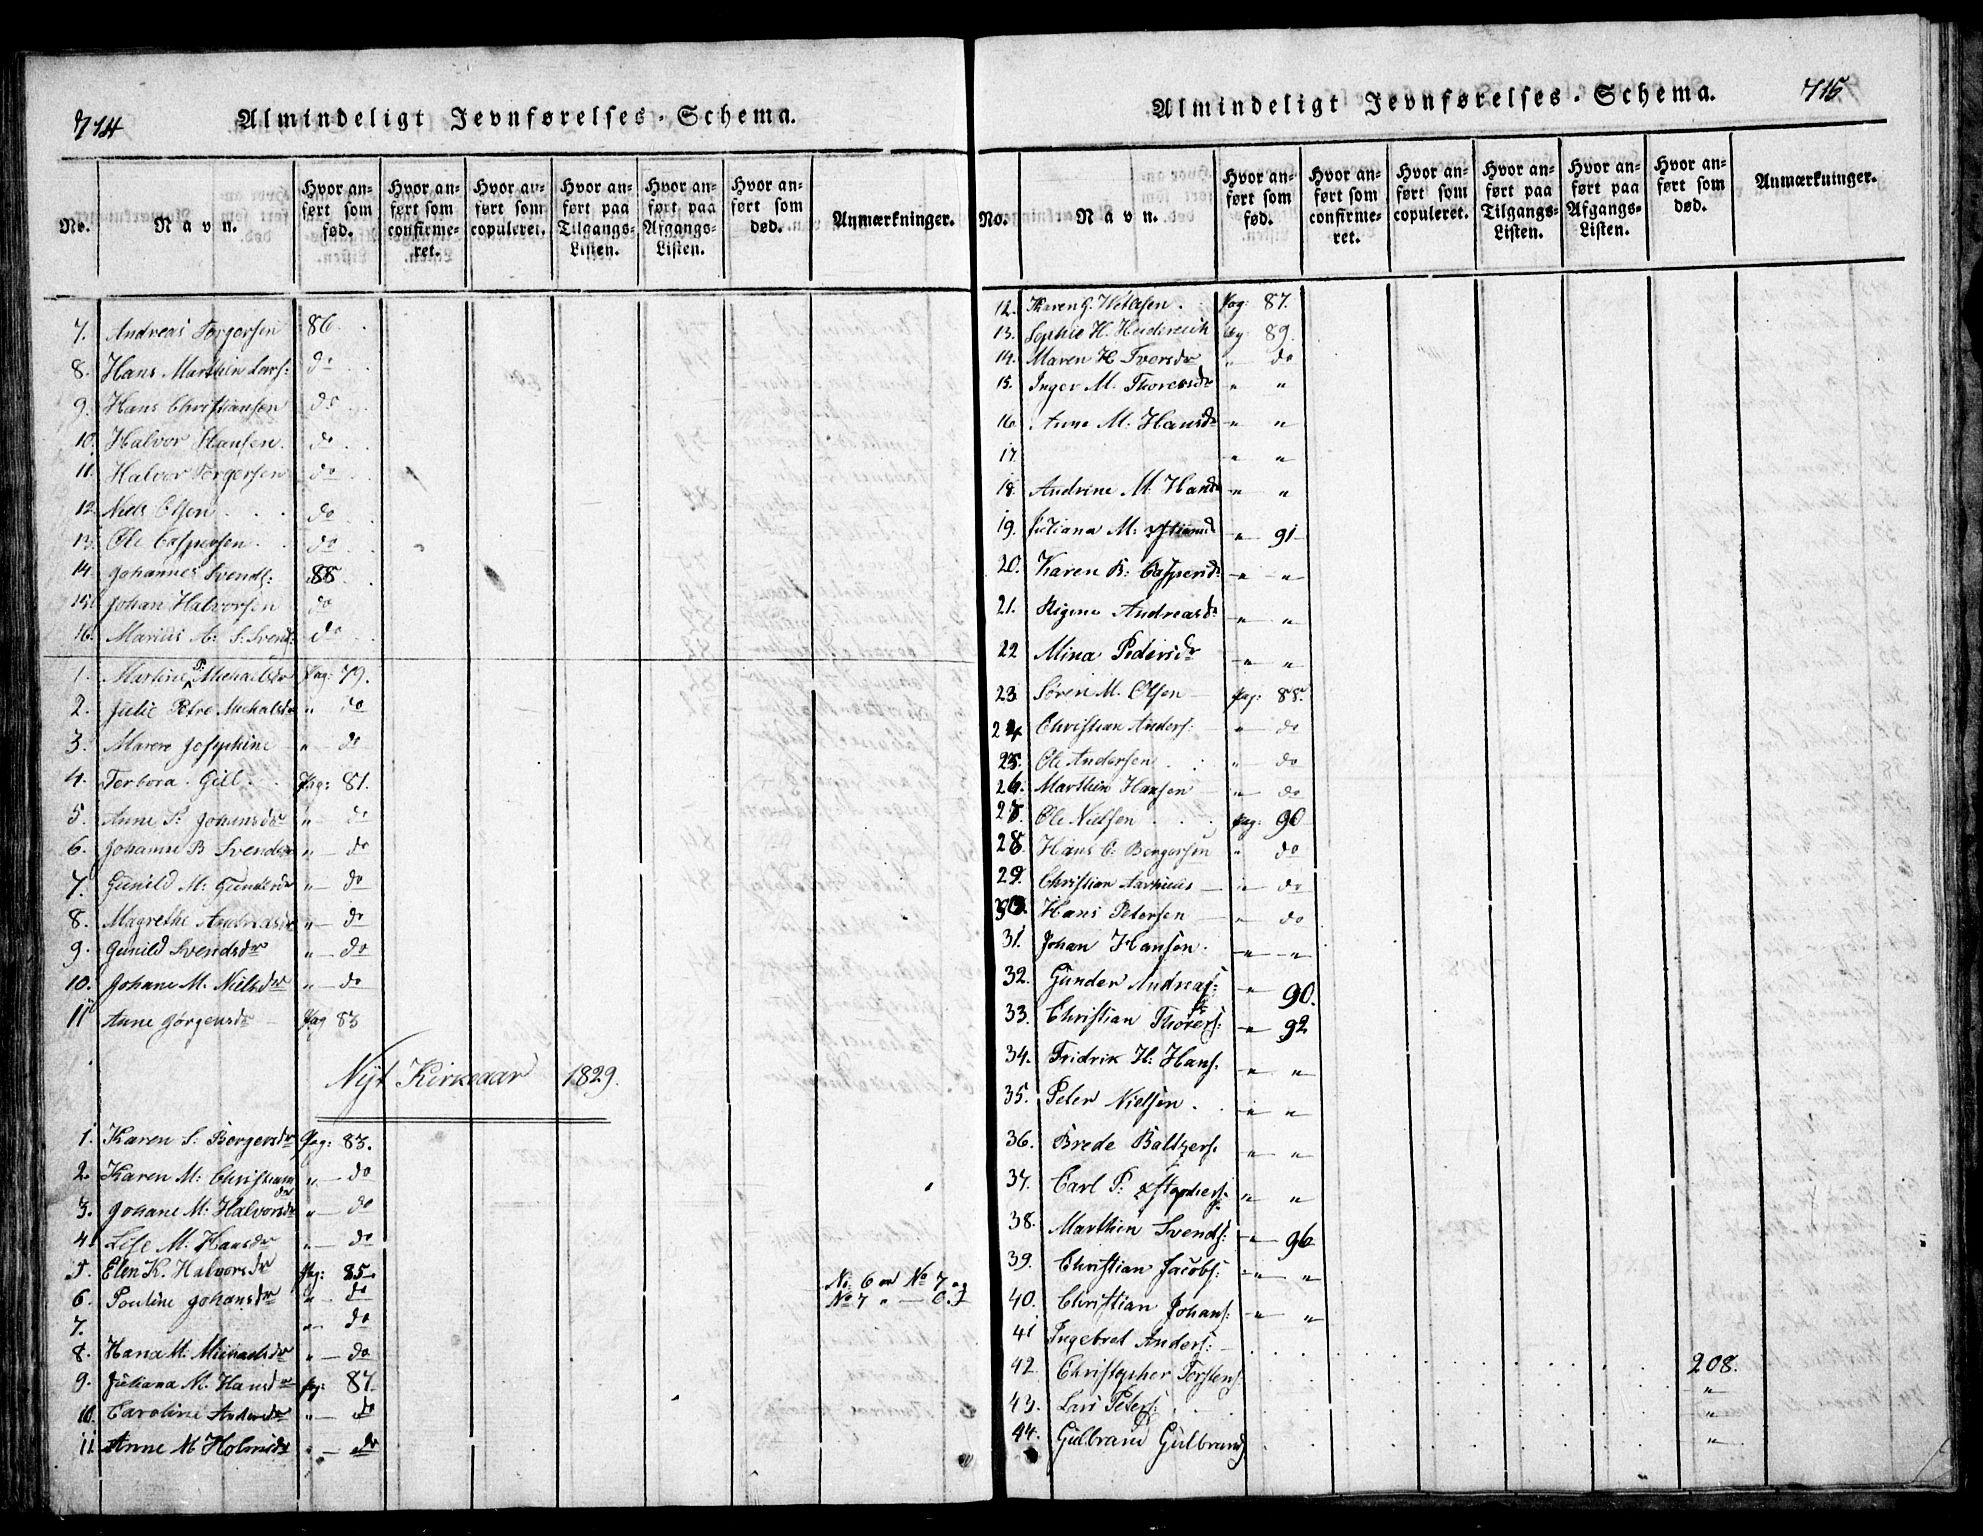 714
Almindeligt Jevnførelses-Schema.
No. Navn. Hvor anført som fød. Hvor anført som confirmeret. Hvor anført som copuleret. Hvor anført paa Tilgangs-Listen. Hvor anført paa Afgangs-Listen. Hvor anført som død. Anmærkninger.
7. Andreas Torgersen 86.
8. Hans Marthin Lars: do
9. Hans Christiansen do
10. Halvor Hansen. do
11. Halvor Torgersen do
12. Niels Olsen do
13. Ole Caspersen. do
14. Johannes Svends: 88.
15. Johan Halvorsen do
16. Marius A: S: Svends: do
1. Martine P: Michaelsdr Pag: 79.
2. Julie Petre Michalsdr " do
3. Maren Josephine " do
4. Terbora Gill Pag: 81.
5. Anne P: Johansdr " do
6. Johanne B Svendsdr " do
7. Gunild M: Gundersdr " do
8. Magrethe Andreasdr " do
9. Gunild Svendsdr " do
10. Johane M. Nielsdr " do
11 Anne Jørgensdr Pag 83
Nyt Kirkeaar 1829.
1. Karen S: Borgersdr Pag: 83.
2. Karen M: Christiansdr " do
3. Johane M: Halvorsdr " do
4. Lise M. Hansdr " do
5. Elen K. Halvorsdr Pag: 85.
6. Pouline Johansdr " do No: 6 er No 7 og
7. " do No 7 " — 6.
8. Hana M: Michaelsdr " do
9. Juliana M. Hansdr Pag: 87.
10. Caroline Andersdr " do
11. Anne M Holmsdr " do
715
Almindeligt Jevnførelses-Schema.
No. Navn. Hvor anført som fød. Hvor anført som confirmeret. Hvor anført som copuleret. Hvor anført paa Tilgangs-Listen. Hvor anført paa Afgangs-Listen. Hvor anført som død. Anmærkninger.
12. Karen G. Pag: 87.
13. Sophie H. Heidereich Pag 89.
14. Maren H Iversdr " do
15. Inger M. Thoresdr " "
16. Anne M: Hansdr " "
17. " "
18. Andrine M. Hansdr " "
19. Juliana M: " 91
20. Karen B: Caspersdr " "
21. Regine Andreasdr " "
22 Mina Pedersdr " "
23. Søren M. Olsen Pag: 88.
24 Christian Anders: " do
25. Ole Andersen " do
26. Marthin Hansen " do
27. Ole Nielsen Pag: 90
28. Hans C: Borgersen " do
29. Christian " do
30. Hans Petersen " do
31. Johan Hansen. " "
32. Gunder Andreas: " 90.
33. Christian Thorers: " 92
34. Fridrik H: Hans. " "
35. Peter Nielsen " "
36. Brede Baltzers. " "
37. Carl P: " "
38. Marthin Svends: " 96
39. Christian Jacobs: " "
40. Christian Johans: " "
41 Ingebret Anders:
42. Christopher Torstens 208.
43. Lars Peters: "
44. Gulbrand Gulbrands "